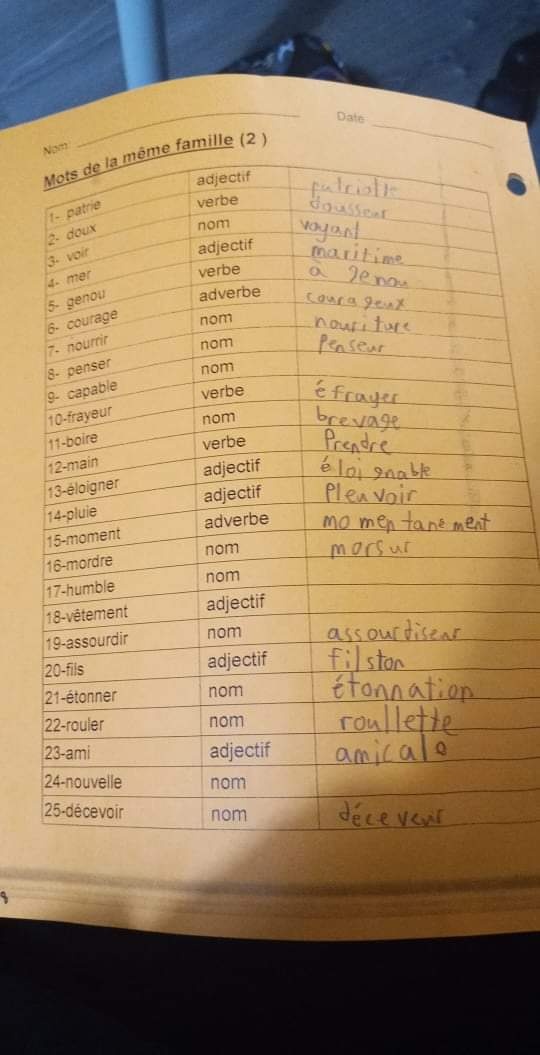 Nom: Date
Mots de la même famille (2 )
1- patrie adjectif
2- doux verbe dousseur
3- voir nom voyant
4- mer adjectif maritime
5- genou verbe à genou
6- courage adverbe courageux
7- nourrir nom nouriture
8- penser nom Penseur
9- capable nom
10-frayeur verbe éfrayer
11-boire nom brevage
12-main verbe Prendre
13-éloigner adjectif éloignable
14-pluie adjectif Pleuvoir
15-moment adverbe momentanement
16-mordre nom morsur
17-humble nom
18-vêtement adjectif
19-assourdir nom assourdiseur
20-fils adjectif filston
21-étonner nom étonnation
22-rouler nom roullette
23-ami adjectif amicale
24-nouvelle nom
25-décevoir nom déceveur